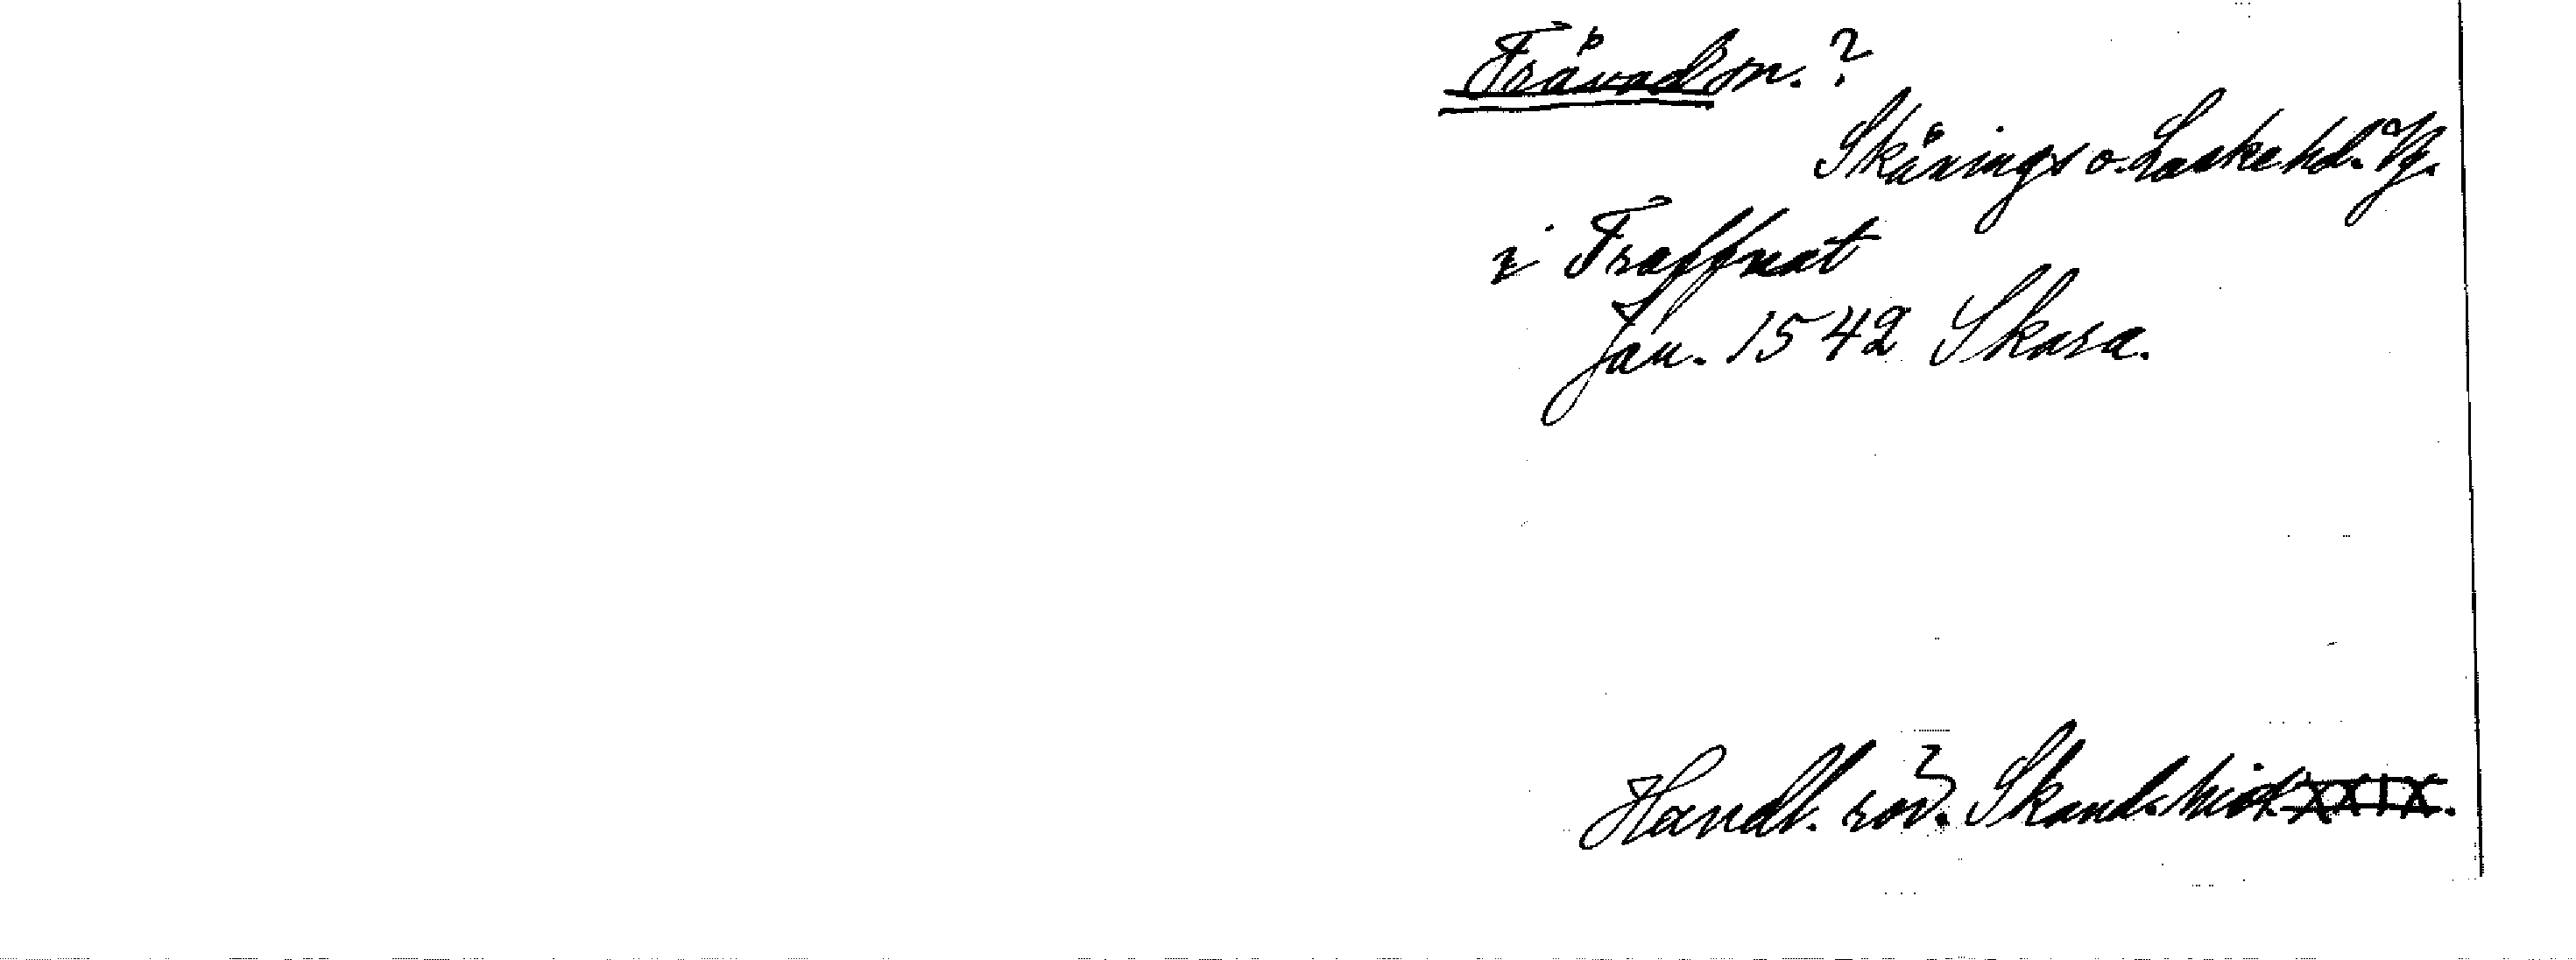 Trävad sn.?
Skånings o. Laske hd. Vg.
i Traffnat
Jan. 1542 Skara.
Handl. rör. Skand. hist. XXIX.